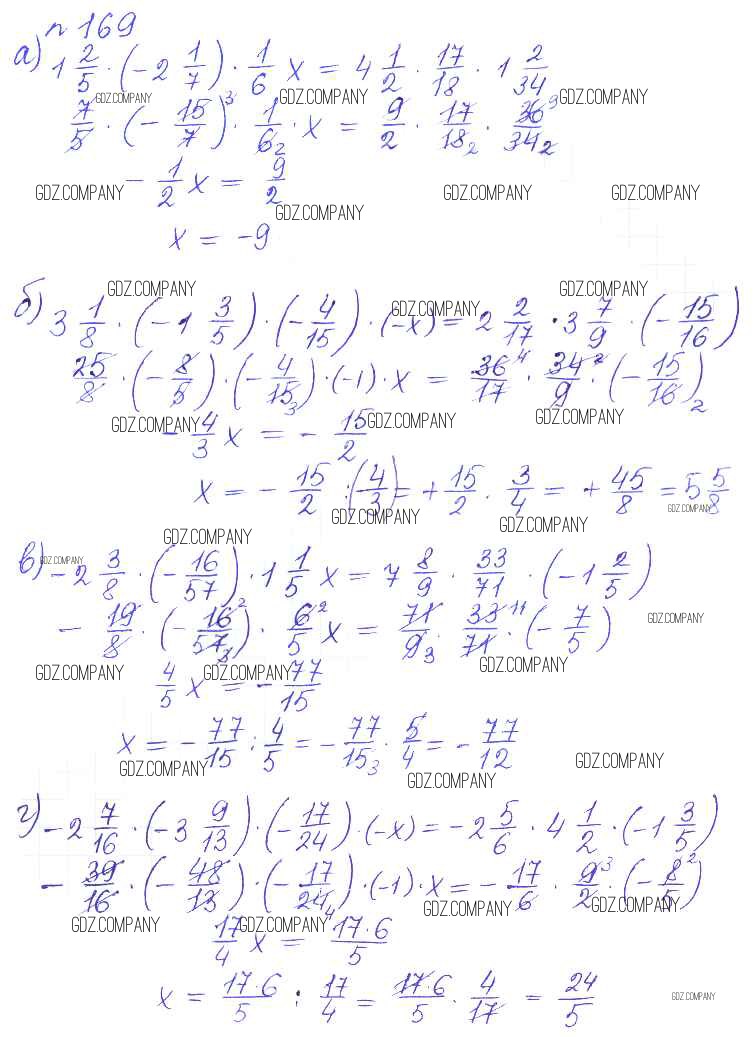 n 169
а) 1 2/5 · (-2 1/7) · 1/6 x = 4 1/2 · 17/18 · 1 2/34
GDZ.COMPANY GDZ.COMPANY GDZ.COMPANY
7/5 · (- 15/7)³ · 1/6₂ · x = 9/2 · 17/18₂ · 36⁹/34₂
- 1/2 x = 9/2
GDZ.COMPANY GDZ.COMPANY GDZ.COMPANY GDZ.COMPANY
x = -9
GDZ.COMPANY GDZ.COMPANY
б) 3 1/8 · (-1 3/5) · (- 4/15) · (-x) = 2 2/17 · 3 7/9 · (- 15/16)
GDZ.COMPANY
25/8 · (- 8/5) · (- 4/15₃) · (-1) · x = 36⁴/17 · 34²/9 · (- 15/16)₂
GDZ.COMPANY GDZ.COMPANY GDZ.COMPANY
- 4/3 x = - 15/2
x = - 15/2 : (- 4/3) = + 15/2 · 3/4 = + 45/8 = 5 5/8
GDZ.COMPANY GDZ.COMPANY GDZ.COMPANY
GDZ.COMPANY GDZ.COMPANY
в) -2 3/8 · (- 16/57) · 1 1/5 x = 7 8/9 · 33/71 · (-1 2/5)
- 19/8 · (- 16²/57₃) · 6²/5 x = 71/9₃ · 33¹¹/71 · (- 7/5)
GDZ.COMPANY
GDZ.COMPANY GDZ.COMPANY GDZ.COMPANY
4/5 x = - 77/15
x = - 77/15 : 4/5 = - 77/15₃ · 5/4 = - 77/12
GDZ.COMPANY GDZ.COMPANY GDZ.COMPANY
г) -2 7/16 · (-3 9/13) · (- 17/24) · (-x) = -2 5/6 · 4 1/2 · (-1 3/5)
- 39/16 · (- 48/13) · (- 17/24₄) · (-1) · x = - 17/6 · 9³/2 · (- 8²/5)
GDZ.COMPANY GDZ.COMPANY GDZ.COMPANY GDZ.COMPANY
17/4 x = 17·6/5
x = 17·6/5 : 17/4 = 17·6/5 · 4/17 = 24/5
GDZ.COMPANY